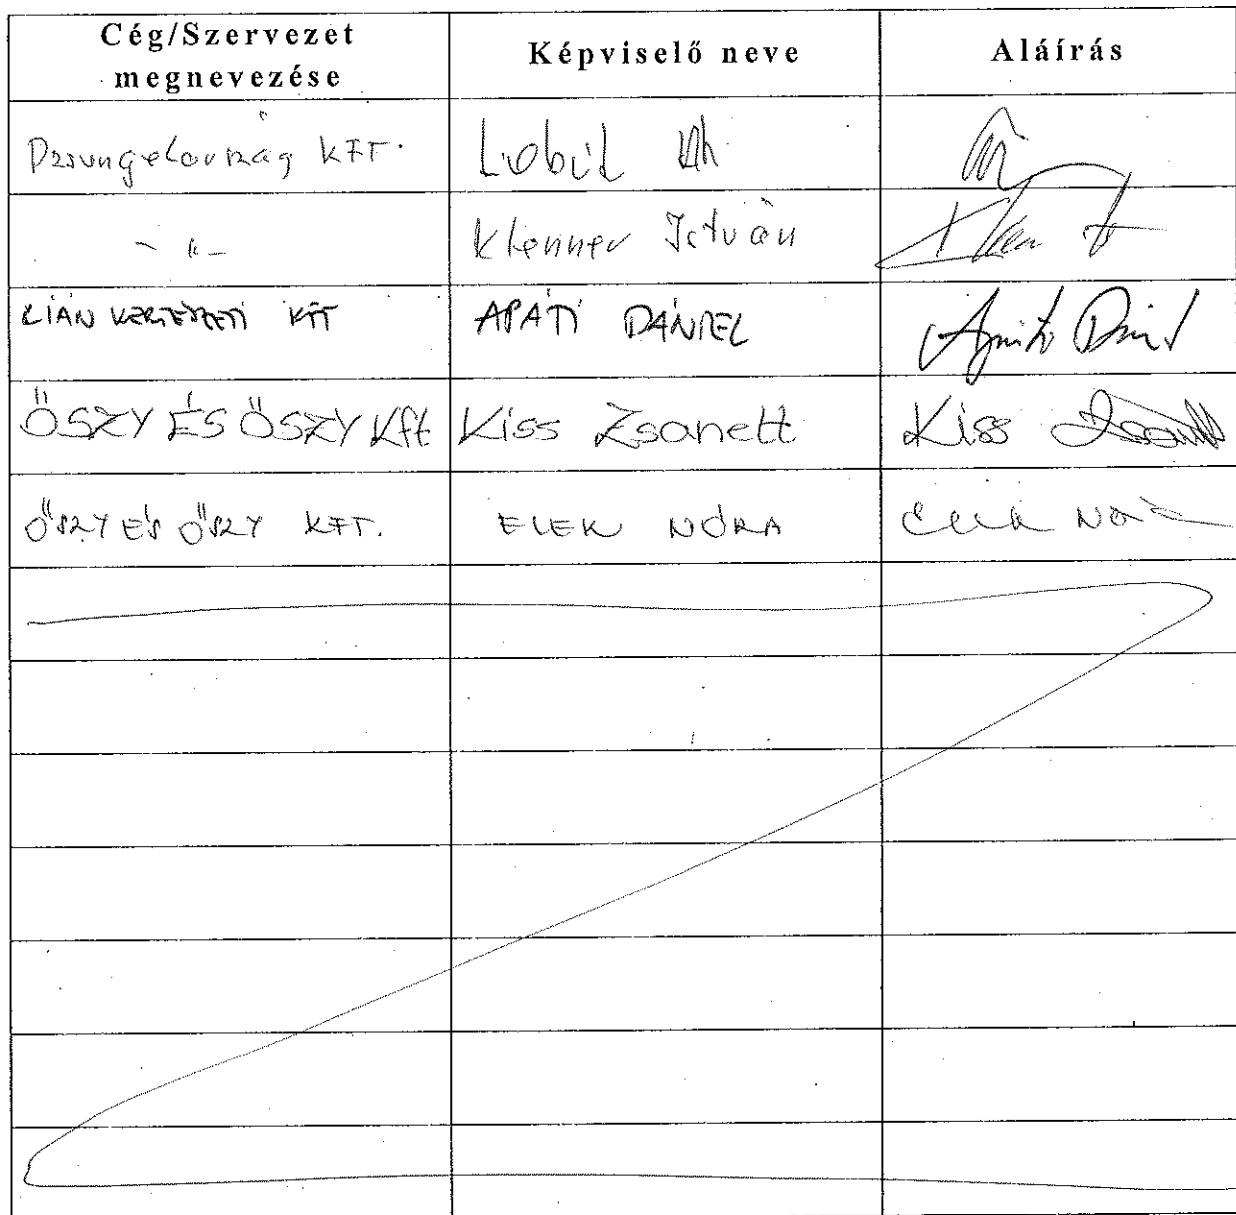 Cég/Szervezet megnevezése Képviselő neve Aláírás
Dzsungelország KFT.
- " - Klenner István
LIÁN KERTÉSZETI KFT APÁTI DÁNIEL
ŐSZY ÉS ŐSZY Kft Kiss Zsanett Kiss Zsanett
ŐSZY ÉS ŐSZY KFT. ELEK NÓRA Elek Nóra